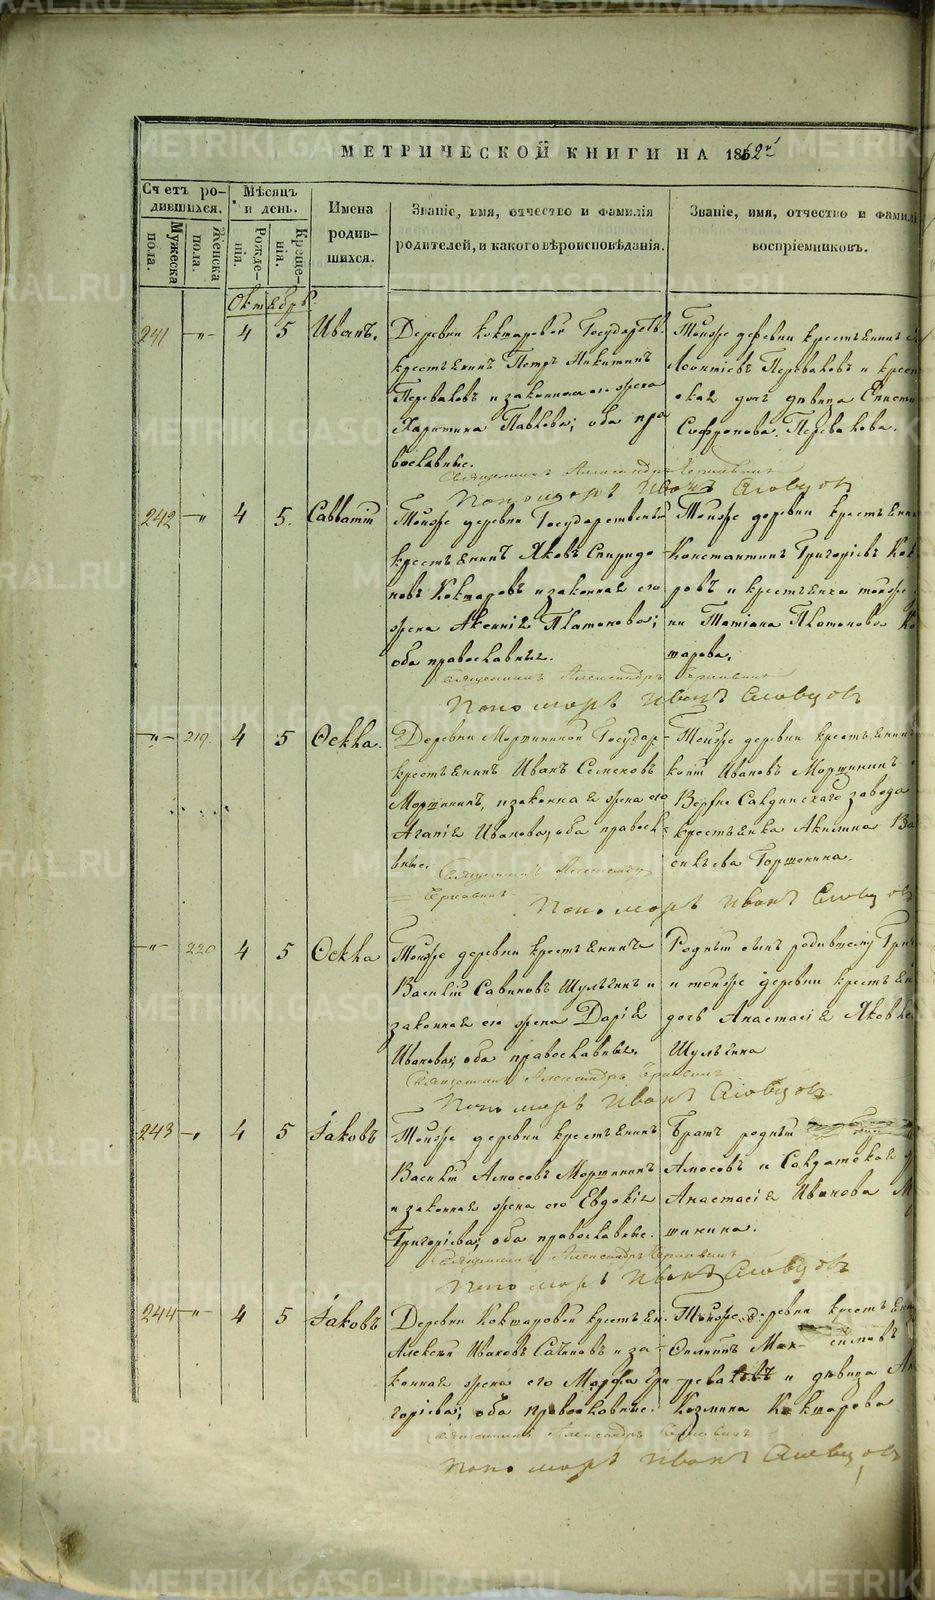 МЕТРИЧЕСКОЙ КНИГИ НА 1862й
Счетъ родившихся.
Мѣсяцъ и день.
Имена родившихся.
Званіе, имя, отчество и фамилія родителей, и какого вѣроисповѣданія.
Званіе, имя, отчество и фамилі
воспріемниковъ.
Мужеска пола.
Женска пола.
Рожденія.
Крещенія.
Октябрь
241 - „ - 4 5 Иванъ.
Деревни Кокшаровой Государств.
крестьянинъ Петръ Никитинъ
Перваковъ и законная его жена
Харитина Павлова; оба пра
вославные.
Тойже деревни крестьянинъ
Леонтіевъ Перваковъ и крест
ская дочь дѣвица
Софронова Первакова.
Священникъ Александръ
Пономарь Иванъ Словцовъ
242 - „ 4 5. Савватій
Тойже деревни Государственный
крестьянинъ Яковъ Спиридо
новъ Кокшаровъ и законная его
жена Аксинія Платонова;
оба православные.
Тойже деревни крестьянин
Константинъ Григоріевъ Кок
ровъ и крестьянка тойже
ни Татіана Платонова Ко
шарова.
Священникъ Александръ
Пономарь Иванъ Словцовъ
- „ - 219. 4 5 Ѳекла.
Деревни Моршининой Государ.
крестьянинъ Иванъ Семеновъ
Моршининъ, и законная жена его
Агапія Иванова; оба правосл
вные.
Тойже деревни крестьянин
Ивановъ Моршининъ
Верхне Салдинскаго завода
крестьянка Акилина Ва
сильева Горшенина.
Священникъ Александръ
Пономарь Иванъ Словцовъ
- „ - 220 4 5 Ѳекла
Тойже деревни крестьянинъ
Василій Савиновъ Шулгинъ и
законная его жена Дарія
Иванова; оба православные.
Родный сынъ родившему Гри
и тойже деревни крестьян
дочь Анастасія Яковле
Шулгина
Священникъ Александръ
Пономарь Иванъ Словцовъ
243 - „ 4 5 Іаковъ
Тойже деревни крестьянинъ
Василій Амосовъ Моршининъ
и законная жена его Евдокія
Григоріева; оба православные.
Братъ родный
Амосовъ и Солдатская
Анастасія Иванова М
шинина.
Священникъ Александръ
Пономарь Иванъ Словцовъ
244 - „ - 4 5 Іаковъ
Деревни Кокшаровой крестьян.
Алексѣй Ивановъ и за-
конная жена его Марѳа Гри
горіева; оба православные.
Тойже деревни крестьян
Филиппъ Мак- симовъ
и дѣвица
Козмина Кокшарова
Священникъ Александръ
Пономарь Иванъ Словцовъ
METRIKI.GASO-URAL.RU